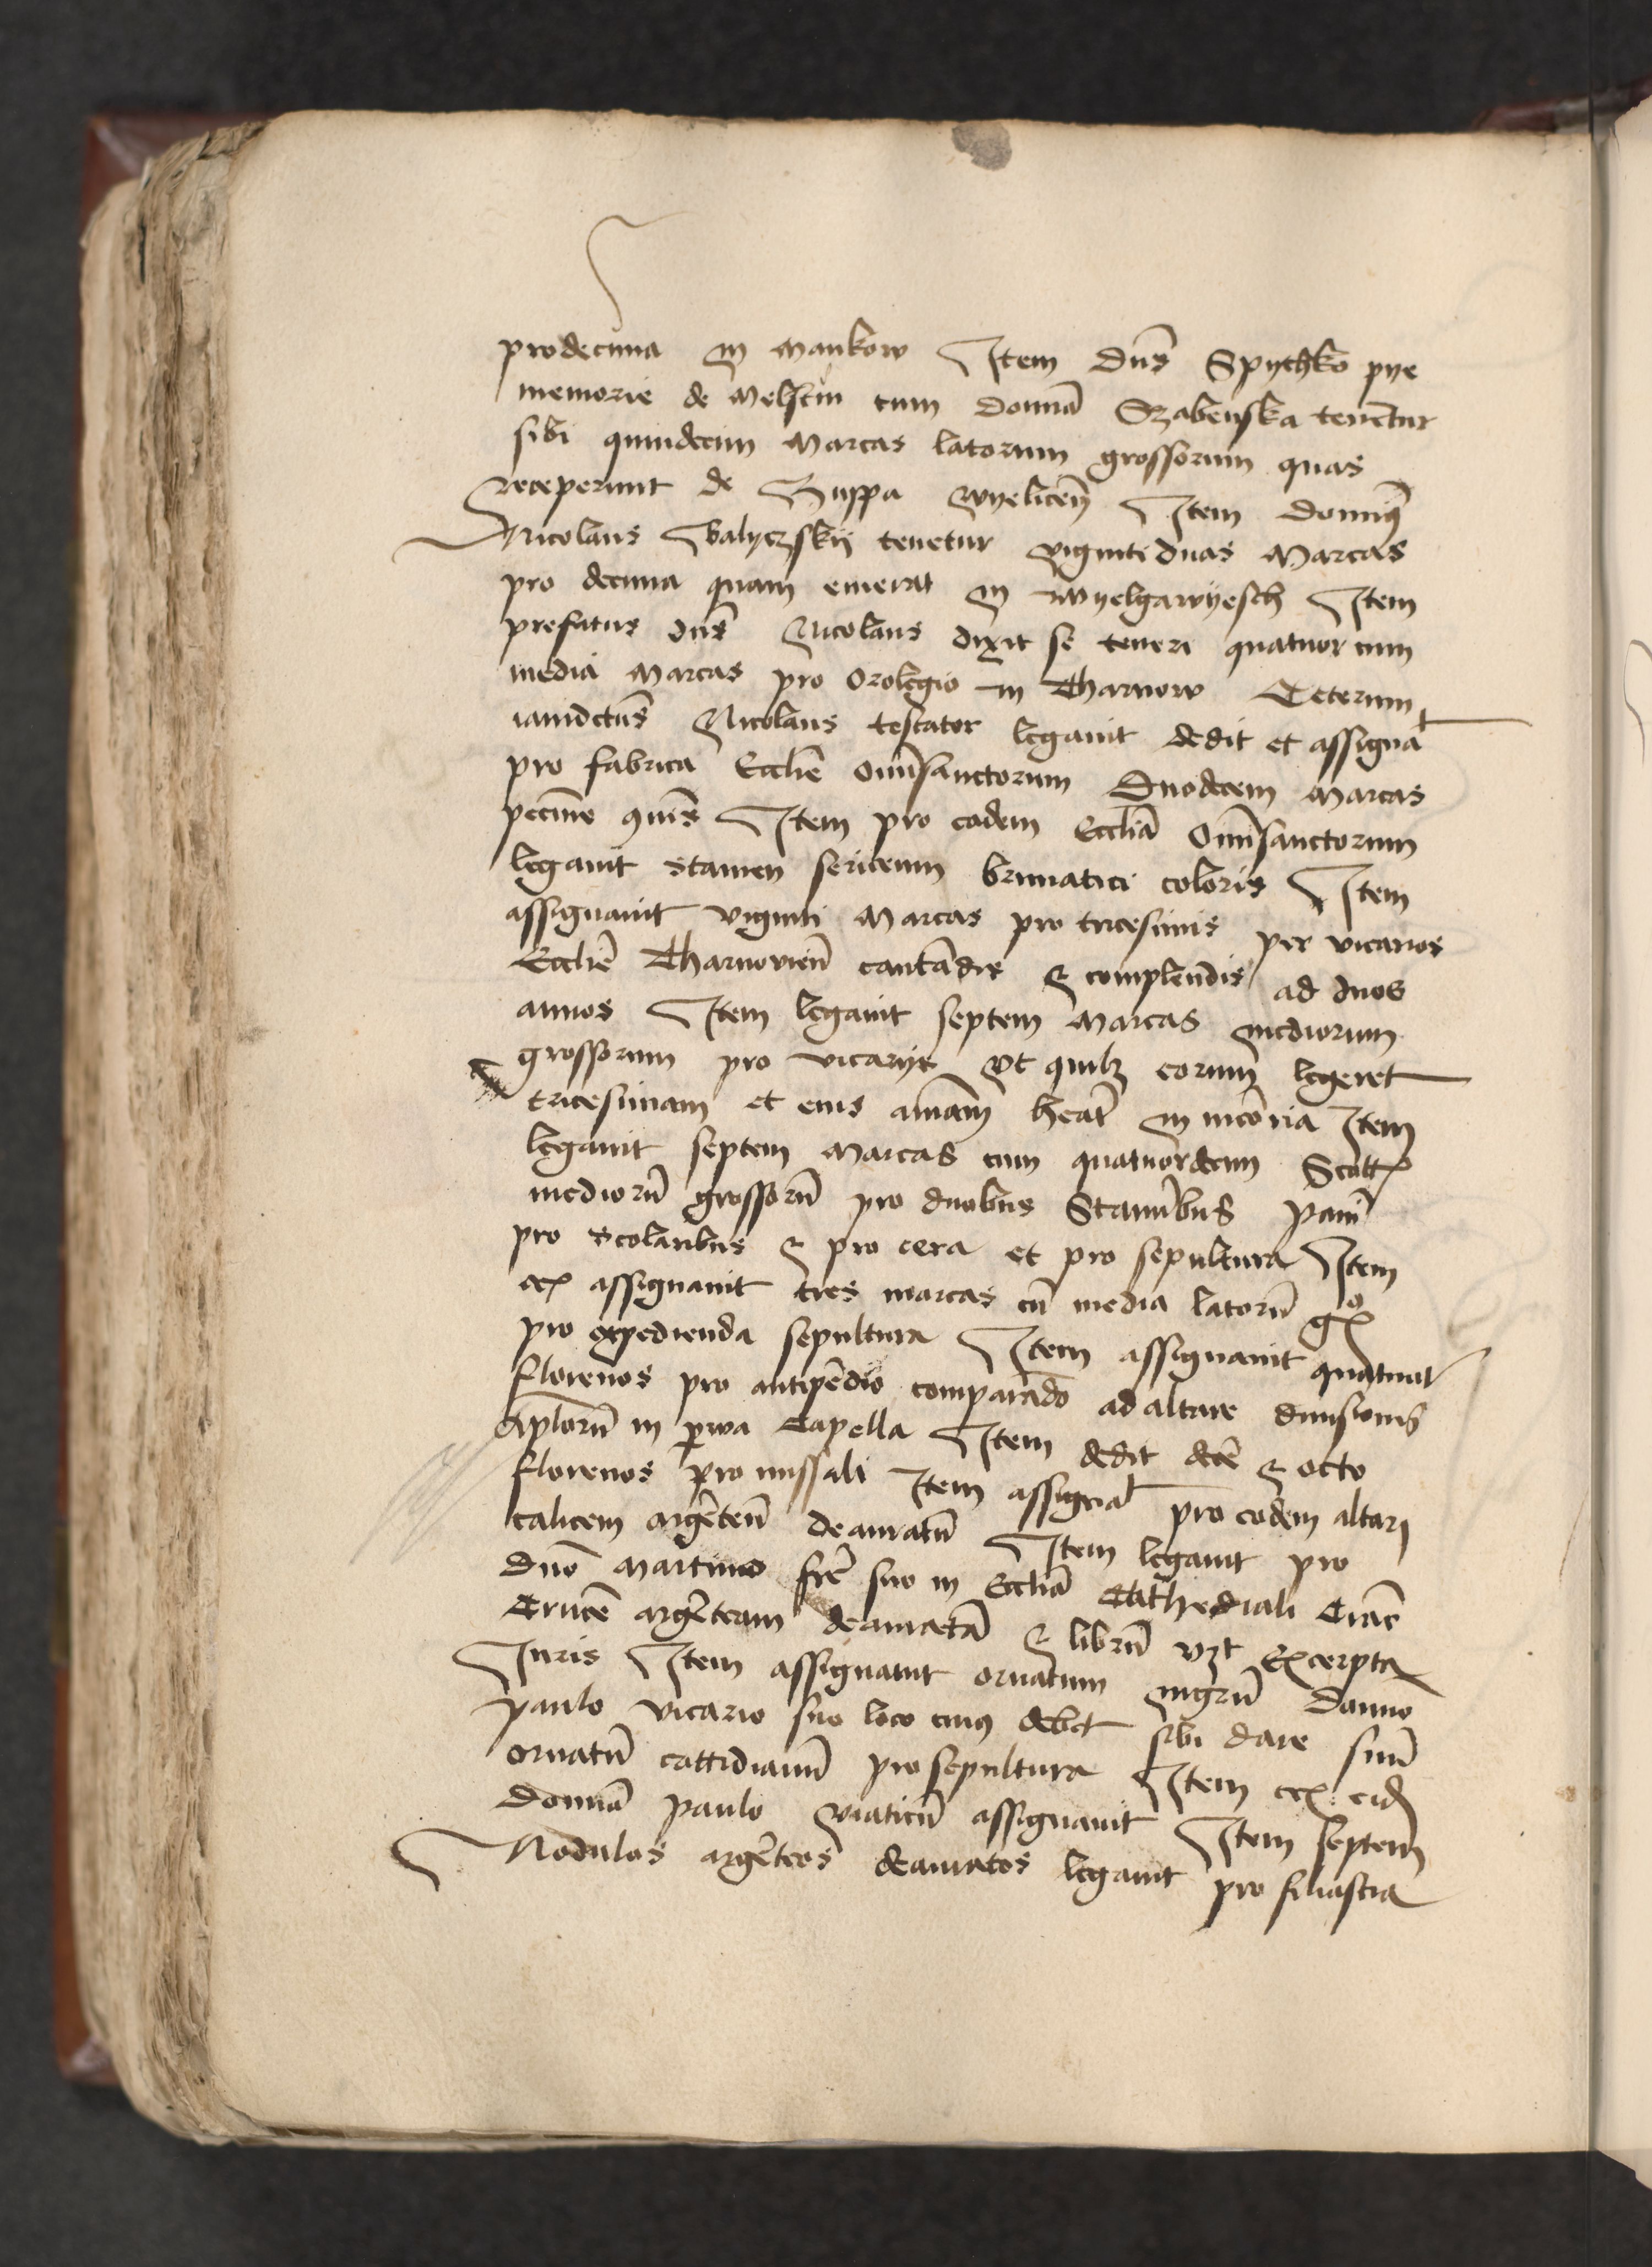 prodecima in Mankow Item Dns̄ Spythko pye
memorie de Melstin cum Domnā Szabenska tenētur
sibi quindecim Marcas latorum grossorum quas
receperunt de Suppa Wyeliceñ Item Domnꝯ
Nicolaus Balyczskij tenetur vigintiduas Marcas
pro decima quam emerat in Wyelgawyesch Item
prefatus dns̄ Nicolaus dixit se teneri quatuor cum
media Marcas pro Orolegio in Tharnow Ceterum
iamdctūs Nicolaus testator legavit dedit et assignat
pro fabrica Ecclie̅ Omi̅sanctorum Duodecem Marcas
pecun̄e ꝯuīs Item pro eadem Eccliā Omi̅sanctorum
legavit stamen sericeum brunatici coloris Item
assignavit viginti Marcas pro tricesimis per vicarios
Ecclie̅ Tharnovieñ cantādis & complendis ad duos
annos Item legavit septem Marcas mediorum
grossorum pro vicarijs Vt quilꝫ eorum legeret
tricesimam et eius animam̅ heāt in mēoria Item
legavit septem Marcas cum quatuordecim Scott
mediorū grossorū pro duobus Stamībus pannī
pro scolaribus & pro cera et pro sepultura Item
assignavit tres marcas cū media latorū gͦ
pro expedienda sepultura Item assignavit quatuor
florenos pro antipēdio comparādo ad altare divisionis
Aplorū in parva Capella Item dedit decē & octo
florenos pro missali Item assignat pro eodem altari
calicem argēteū deauratū Item legavit pro
Dno̅ Martino fr̄e suo in Eccliā Cathedrali Crac̄
Crucē argēteam deauratā & librū vꝫt Excerpta
Juris Item assignavit ornatum nigrū Domno
Paulo vicario suo loco cuiꝯ debet sibi dare suū
ornatū cottidianū pro sepultura Item eid
Domnō Paulo viaticū assignavit Item septem
Nodulos argēteos deauratos legavit pro filiastra